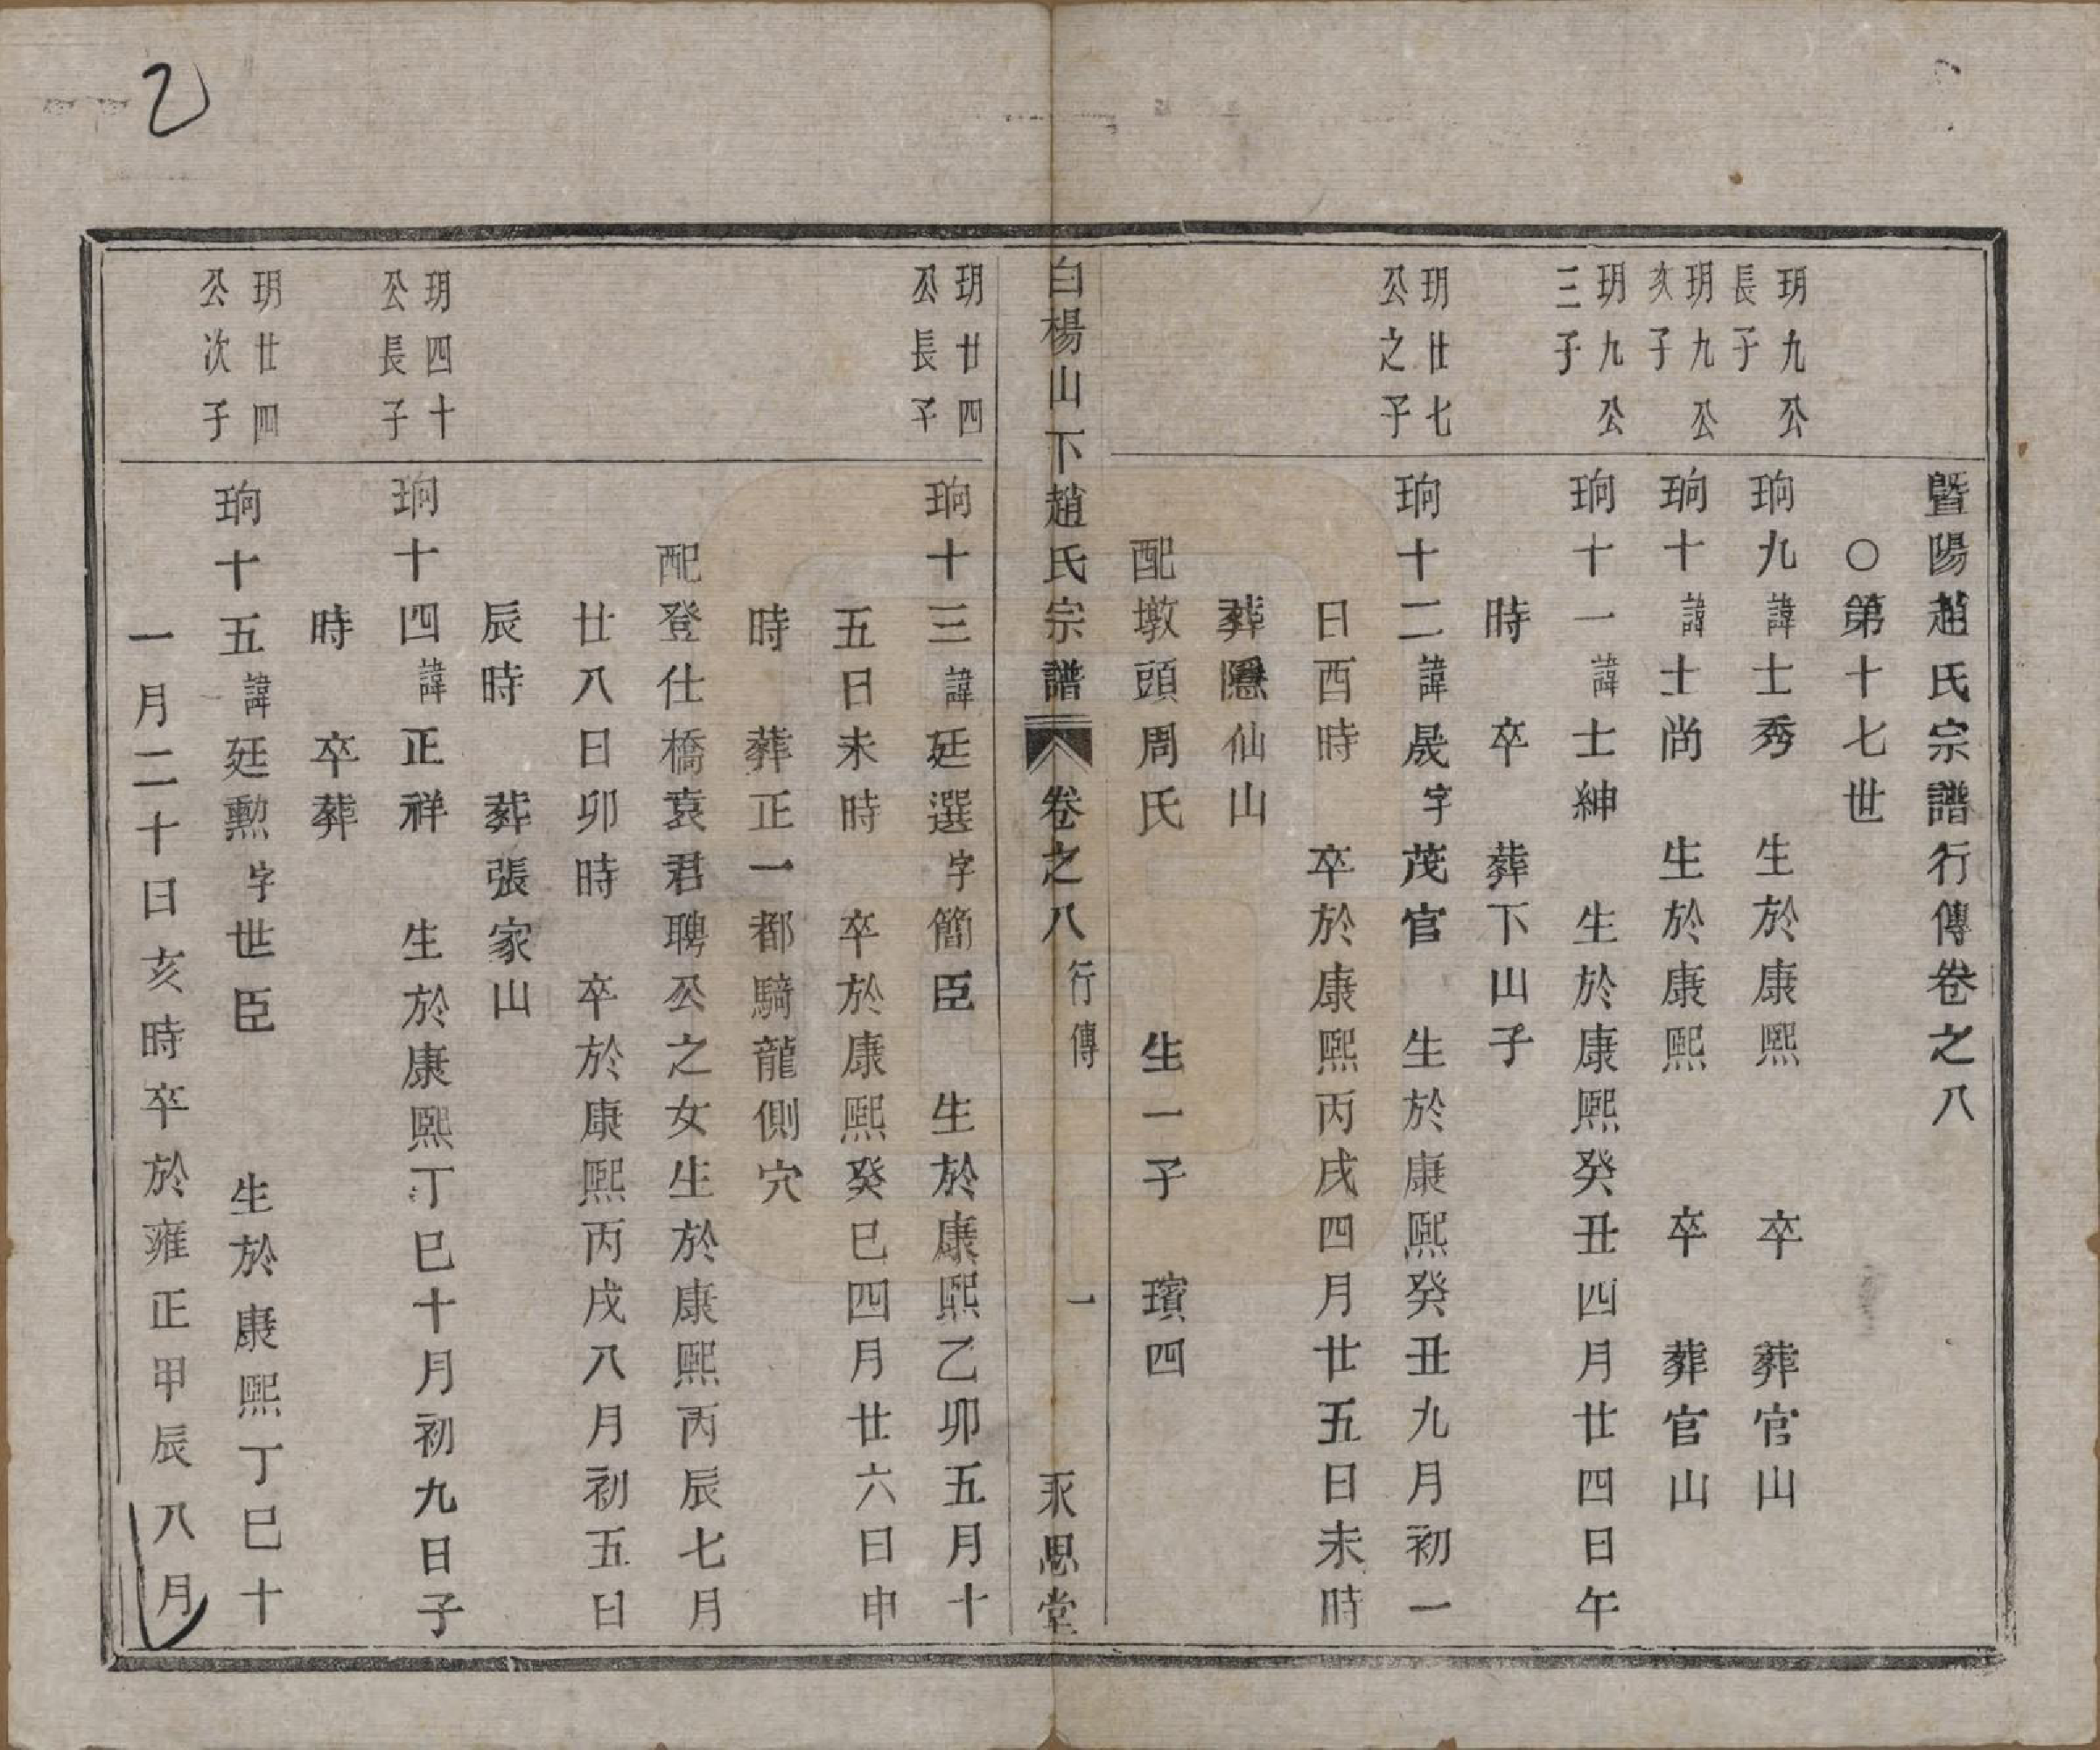 暨陽趙氏宗譜行傳卷之八
○第十七世
玥九公長子
珦九諱士秀 生於康熙 卒 葬官山
玥九公次子
珦十諱士尚 生於康熙 卒 葬官山
玥九公三子
珦十一諱士紳 生於康熙癸丑四月廿四日午
時 卒 葬下山子
玥廿七公之子
珦十二諱晟字茂官 生於康熙癸丑九月初一
日酉時 卒於康熙丙戌四月廿五日未時
葬隱仙山
配墩頭周氏 生一子 璸四
白楊山下趙氏宗譜 卷之八 行傳 一 永思堂
玥廿四公長子
珦十三諱廷選字簡臣 生於康熙乙卯五月十
五日未時 卒於康熙癸巳四月廿六日申
時 葬正一都騎龍側穴
配登仕橋袁君聘公之女生於康熙丙辰七月
廿八日卯時 卒於康熙丙戌八月初五日
辰時 葬張家山
玥四十公長子
珦十四諱正祥 生於康熙丁巳十月初九日子
時 卒葬
玥廿四公次子
珦十五諱廷勲字世臣 生於康熙丁巳十
一月二十日亥時卒於雍正甲辰八月